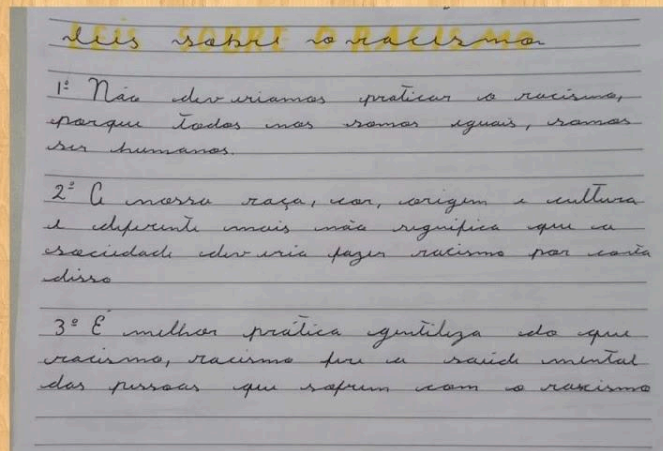 leis sobre o racismo
1º Não deveriamos praticar o racismo,
porque todos nos somos iguais, somos
ser humanos.
2º A nossa raça, cor, origem e cultura
e diferente mais não significa que a
sociedade deveria fazer racismo por conta
disso
3º É melhor prática gentileza do que
racismo, racismo fere a saúde mental
das pessoas que sofrem com o racismo